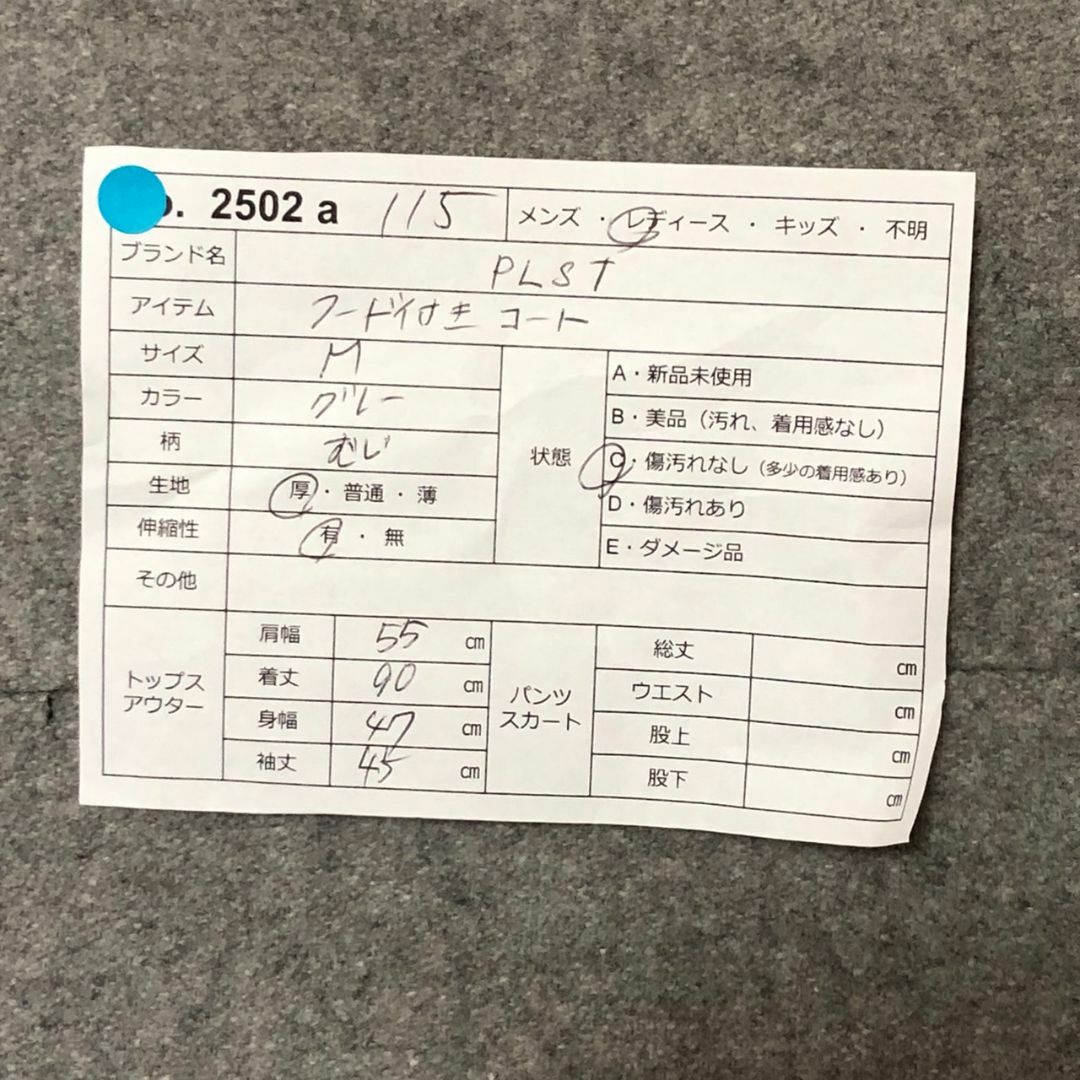 o. 2502 a 115 メンズ ・ レディース ・ キッズ ・ 不明
ブランド名 PLST
アイテム フード付き コート
サイズ M
カラー グレー
柄 むじ
生地 厚 ・ 普通 ・ 薄
伸縮性 有 ・ 無
状態
A・新品未使用
B・美品（汚れ、着用感なし）
C・傷汚れなし（多少の着用感あり）
D・傷汚れあり
E・ダメージ品
その他
トップス
アウター
肩幅 55 cm
着丈 90 cm
身幅 47 cm
袖丈 45 cm
パンツ
スカート
総丈 cm
ウエスト cm
股上 cm
股下 cm